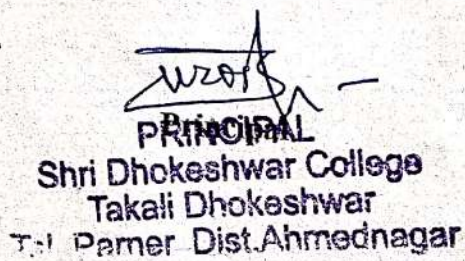 Principal
PRINCIPAL
Shri Dhokeshwar College
Takali Dhokeshwar
Tal Parner Dist.Ahmednagar